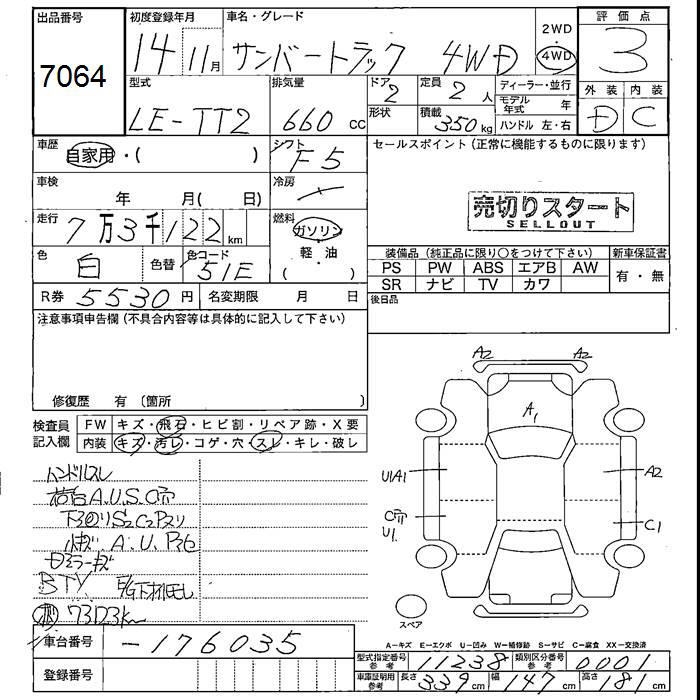 出品番号
7064
初度登録年月
14 11月
車名・グレード
サンバートラック 4WD
2WD
・
4WD
評価点
3
外装 内装
D C
型式
LE-TT2
排気量
660 cc
ドア
2
形状
定員
2 人
積載
350 kg
ディーラー・並行
モデル年式 年
ハンドル 左・右
車歴
自家用・( )
シフト
F5
車検
年 月( 日)
冷房
走行
7万3千122 km
燃料
ガソリン
軽・油
( )
色
白
色替
色コード
51E
R券 5530円
名変期限 月 日
セールスポイント(正常に機能するものに限ります)
売切りスタート
SELLOUT
装備品(純正品に限り○をつけて下さい)
PS PW ABS エアB AW
SR ナビ TV カワ
新車保証書
有・無
後日品
注意事項申告欄(不具合内容等は具体的に記入して下さい)
修復歴 有(箇所 )
検査員記入欄
FW キズ・飛石・ヒビ割・リペア跡・X要
内装 キズ・汚レ・コゲ・穴・スレ・キレ・破レ
ハンドルスレ
荷台A.U.S.C
下回りS2C2
小キズ A.U.
ミラーキズ
BTV E/G下
73123km
車台番号
-176035
登録番号
A2 A2
A1
U1A1
A2
C
U1
C1
スペア
A=キズ E=エクボ U=凹み W=補修跡 S=サビ C=腐食 XX=交換済
型式指定番号 参考 11238
類別区分番号 参考 0001
車庫証明用 参考
長さ 339cm 幅 147cm 高さ 181cm